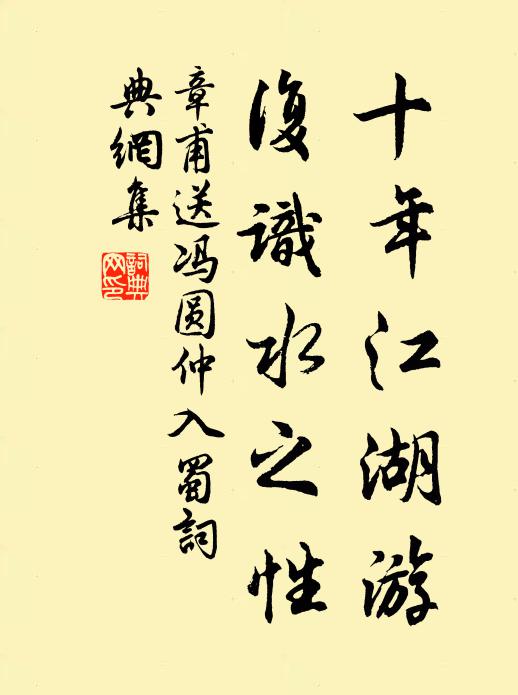 十年江湖游
復識水之性
章甫送冯圆仲入蜀詞
典網集
詞典网印